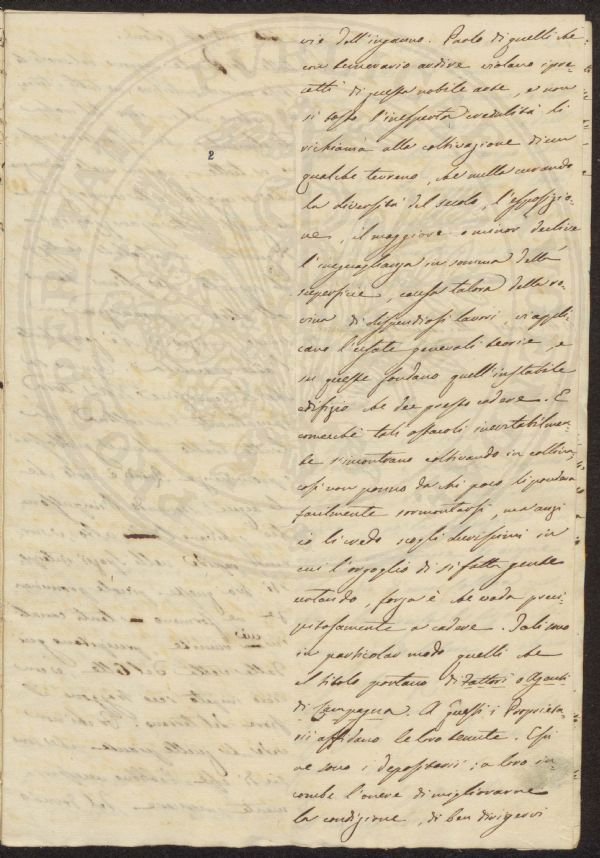 2
vie dell'inganno. Parlo di quelli che
con temerario ardire violano i pre-
cetti di questa nobile arte, e non
si tosto l'inesperta credulità li
richiama alla coltivazione di un
qualche terreno, che nulla curando
la diversità del suolo, l'esposizio-
ne, il maggiore o minor declive
l'ineguaglianza in somma della
superficie, causa talora della ro-
vina di dispendiosi lavori, vi appli-
cano l'usate generali teorie, e
su queste fondano quell'instabile
edifizio che dee presto cadere. E
comechè tali ostacoli inevitabilmen-
te s'incontrano coltivando in collina,
così non ponno da chi poco li pondera
facilmente sormontarsi, ma anzi
io li credo scogli durissimi in
cui l'orgoglio di sì fatta gente
urtando, forza è che vada preci-
pitosamente a cadere. Tali sono
in particolar modo quelli che
il titolo portano di Fattori o Agenti
di Campagna. A questi i Proprieta-
rii affidano le loro tenute. Essi
ne sono i depositarii; a loro in-
combe l'onere di migliorarne
la condizione, di ben dirigervi